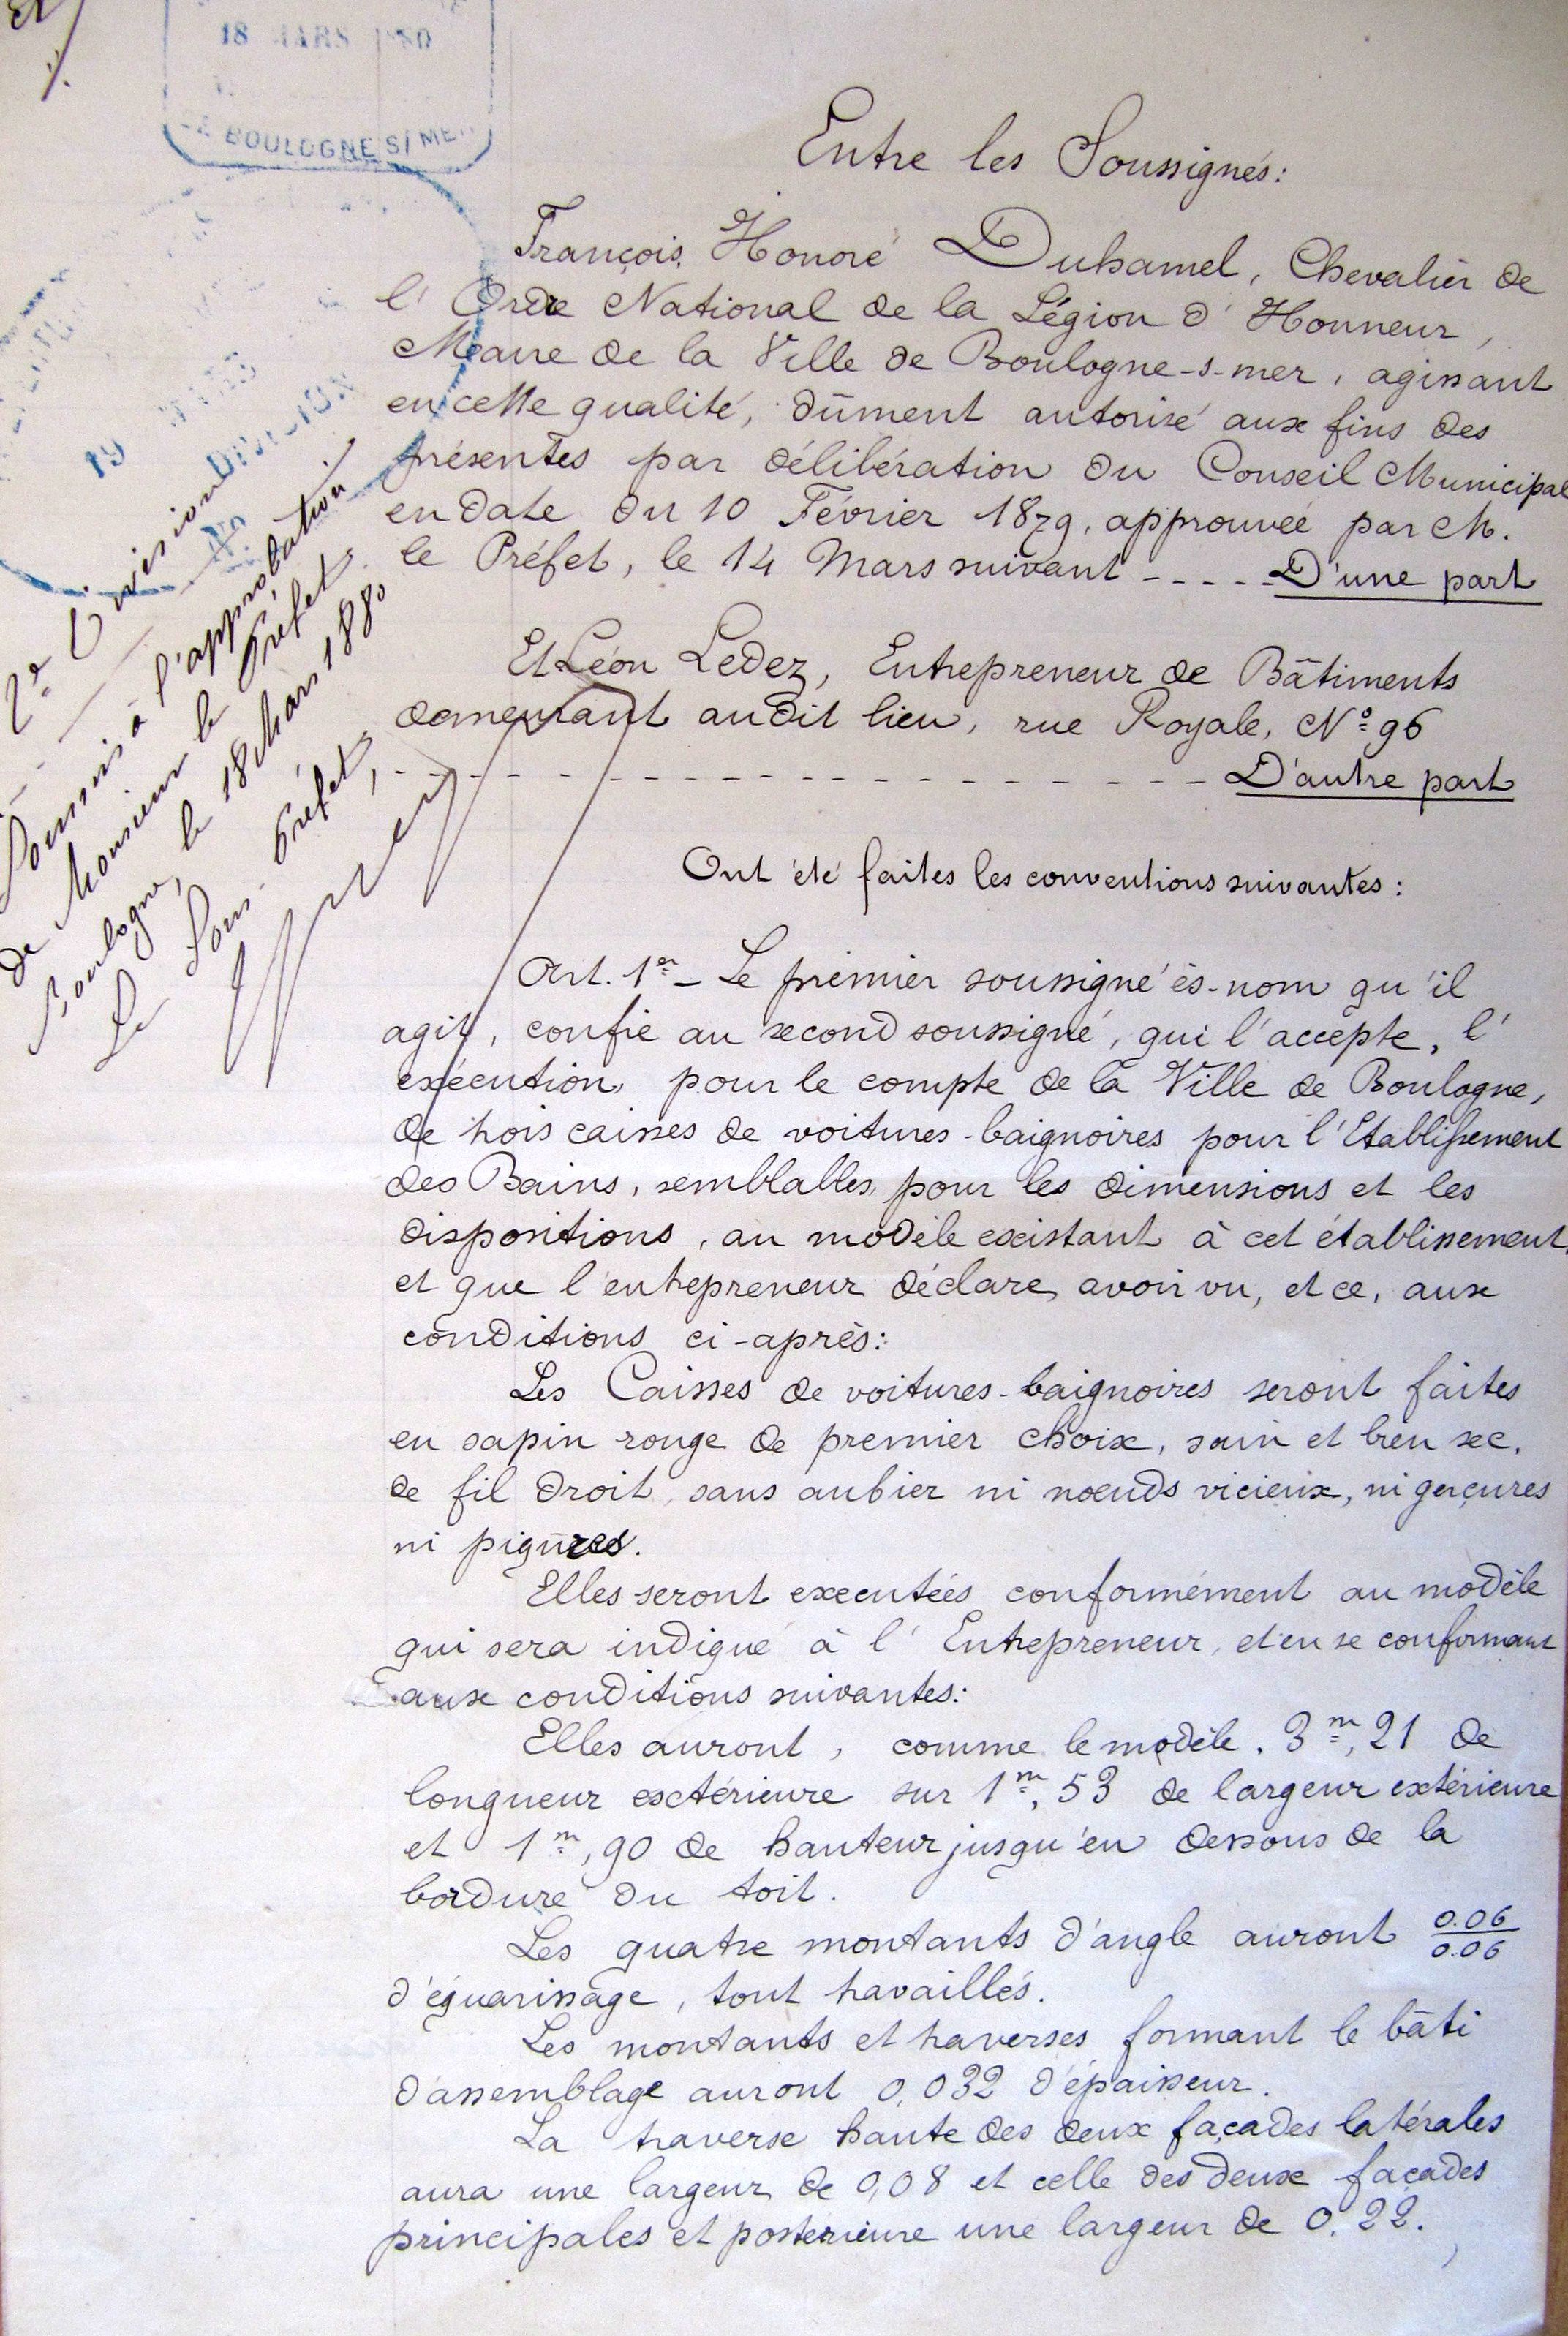 18 MARS 1880
BOULOGNE S/ MER
19 MARS
DIVISION
2e Division
Soumis à l'approbation
de Monsieur le Préfet
Boulogne, le 18 Mars 1880
Le Sous-Préfet,
Entre les Soussignés:
François Honoré Duhamel, Chevalier de
l'Ordre National de la Légion d'Honneur,
Maire de la Ville de Boulogne-s-mer, agissant
en cette qualité, dûment autorisé aux fins des
présentes par délibération du Conseil Municipal
en date du 10 Février 1879, approuvée par M.
le Préfet, le 14 Mars suivant - - - - - D'une part
Et Léon Ledez, Entrepreneur de Bâtiments
demeurant audit lieu, rue Royale, No 96
- - - - - - - - - - - - - - - - D'autre part
Ont été faites les conventions suivantes :
Art. 1er - Le premier soussigné ès-nom qu'il
agit, confie au second soussigné, qui l'accepte, l'
exécution pour le compte de la Ville de Boulogne,
de trois caisses de voitures-baignoires pour l'Etablissement
des Bains, semblables, pour les dimensions et les
dispositions, au modèle existant à cet établissement,
et que l'entrepreneur déclare avoir vu, et ce, aux
conditions ci-après:
Les Caisses de voitures-baignoires seront faites
en sapin rouge de premier choix, sain et bien sec,
de fil droit, sans aubier ni nœuds vicieux, ni gerçures
ni piqures.
Elles seront executées conformément au modèle
qui sera indiqué à l'Entrepreneur, et en se conformant
aux conditions suivantes:
Elles auront, comme le modèle, 3m,21 de
longueur extérieure sur 1m,53 de largeur extérieure
et 1m,90 de hauteur jusqu'en dessous de la
bordure du toit.
Les quatre montants d'angle auront 0.06/0.06
d'équarissage, tout travaillés.
Les montants et traverses formant le bâti
d'assemblage auront 0,032 d'épaisseur.
La traverse haute des deux façades latérales
aura une largeur de 0,08 et celle des deux façades
principales et posterieure une largeur de 0.22.